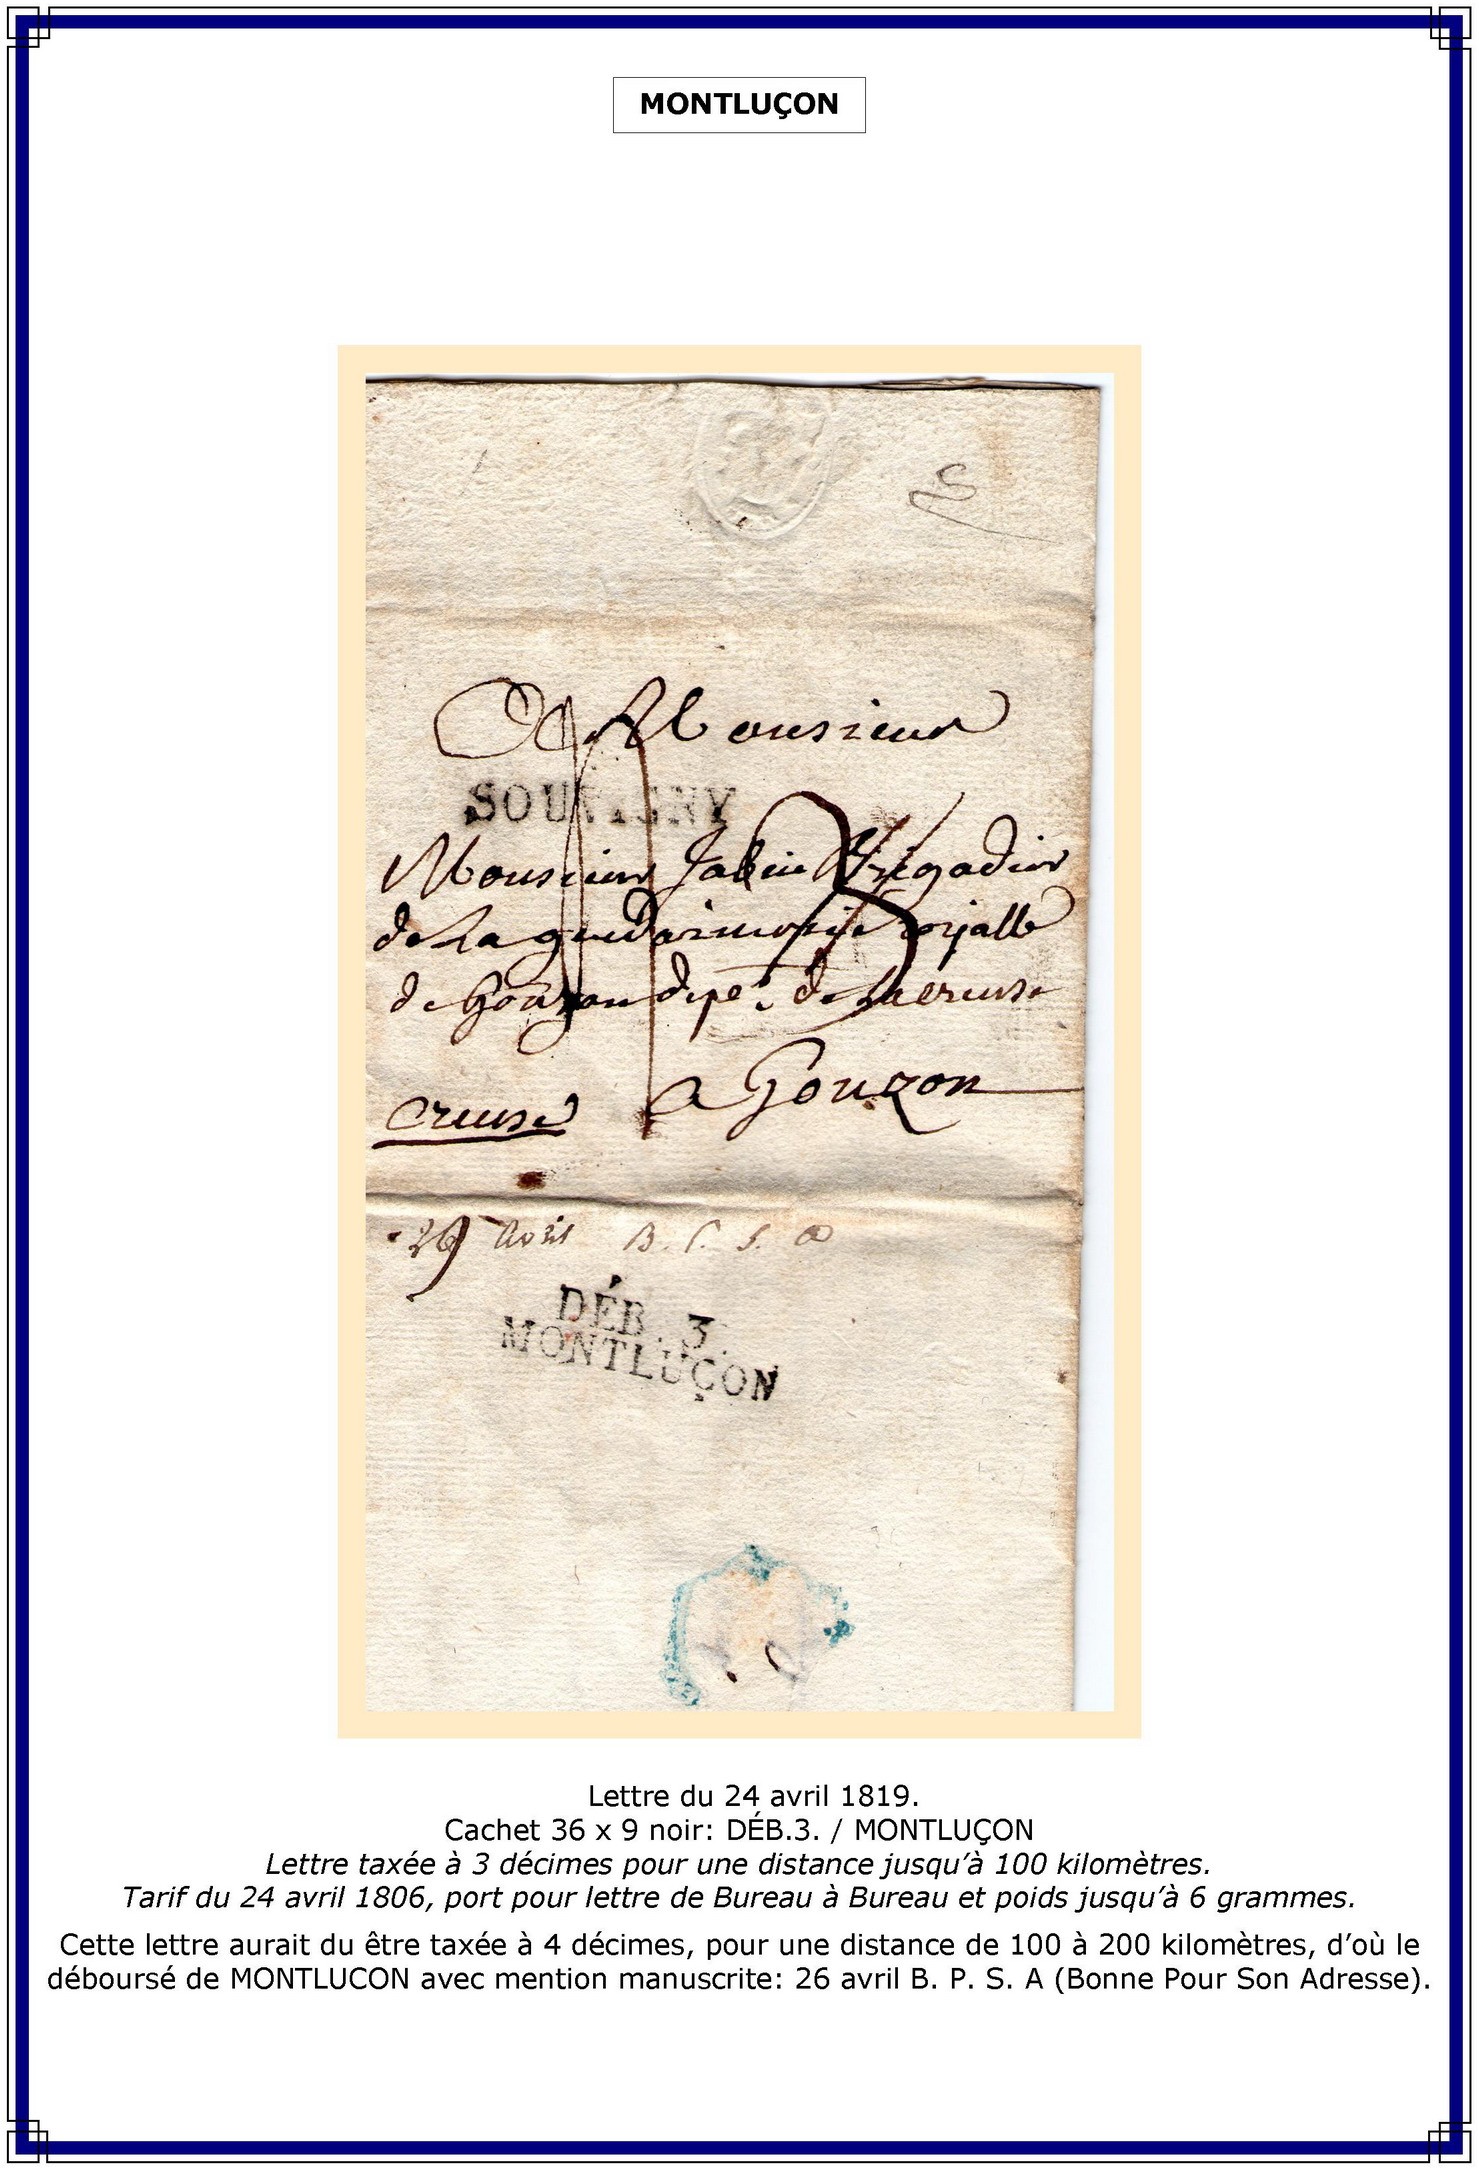 MONTLUÇON
A Monsieur
SOUVIGNY
Monsieur Jabin Brigadier
de La gendarmerie Royalle
de Gouzon depe. de La creuse
a Gouzon
creuse
26 avril B. P. S. A
DÉB. 3.
MONTLUÇON
Lettre du 24 avril 1819.
Cachet 36 x 9 noir: DÉB.3. / MONTLUÇON
Lettre taxée à 3 décimes pour une distance jusqu’à 100 kilomètres.
Tarif du 24 avril 1806, port pour lettre de Bureau à Bureau et poids jusqu’à 6 grammes.
Cette lettre aurait du être taxée à 4 décimes, pour une distance de 100 à 200 kilomètres, d’où le
déboursé de MONTLUCON avec mention manuscrite: 26 avril B. P. S. A (Bonne Pour Son Adresse).